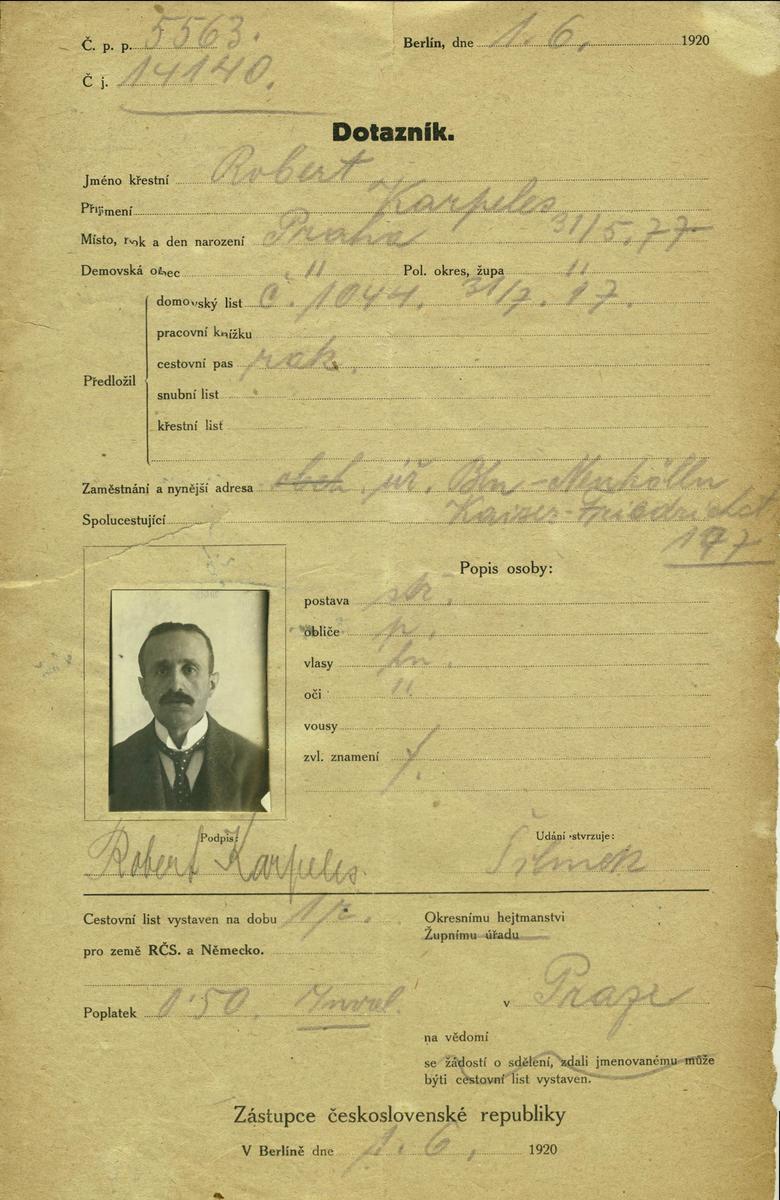 Č. p. p. 5563.
Berlín, dne 1. 6. 1920
Č j. 14140.
Dotazník.
Jméno křestní Robert
Příjmení Karpeles
Místo, rok a den narození Praha 31/5. 77
Demovská obec " Pol. okres, župa "
Předložil
domovský list č. 1044. 31/7. 17.
pracovní knížku
cestovní pas rak.
snubní list
křestní list
Zaměstnání a nynější adresa obch. úř. Bln-Neukölln
Spolucestující Kaiser-Friedrichst
197
Popis osoby:
postava stř.
obličej p.
vlasy hn.
oči "
vousy
zvl. znamení
Podpis:
Robert Karpeles.
Údání stvrzuje:
Cestovní list vystaven na dobu 1 r.
pro země RČS. a Německo.
Poplatek 0·50. Inval.
Okresnímu hejtmanství
Župnímu úřadu
v Praze
na vědomí
se žádostí o sdělení, zdali jmenovanému může
býti cestovní list vystaven.
Zástupce československé republiky
V Berlíně dne 1. 6. 1920